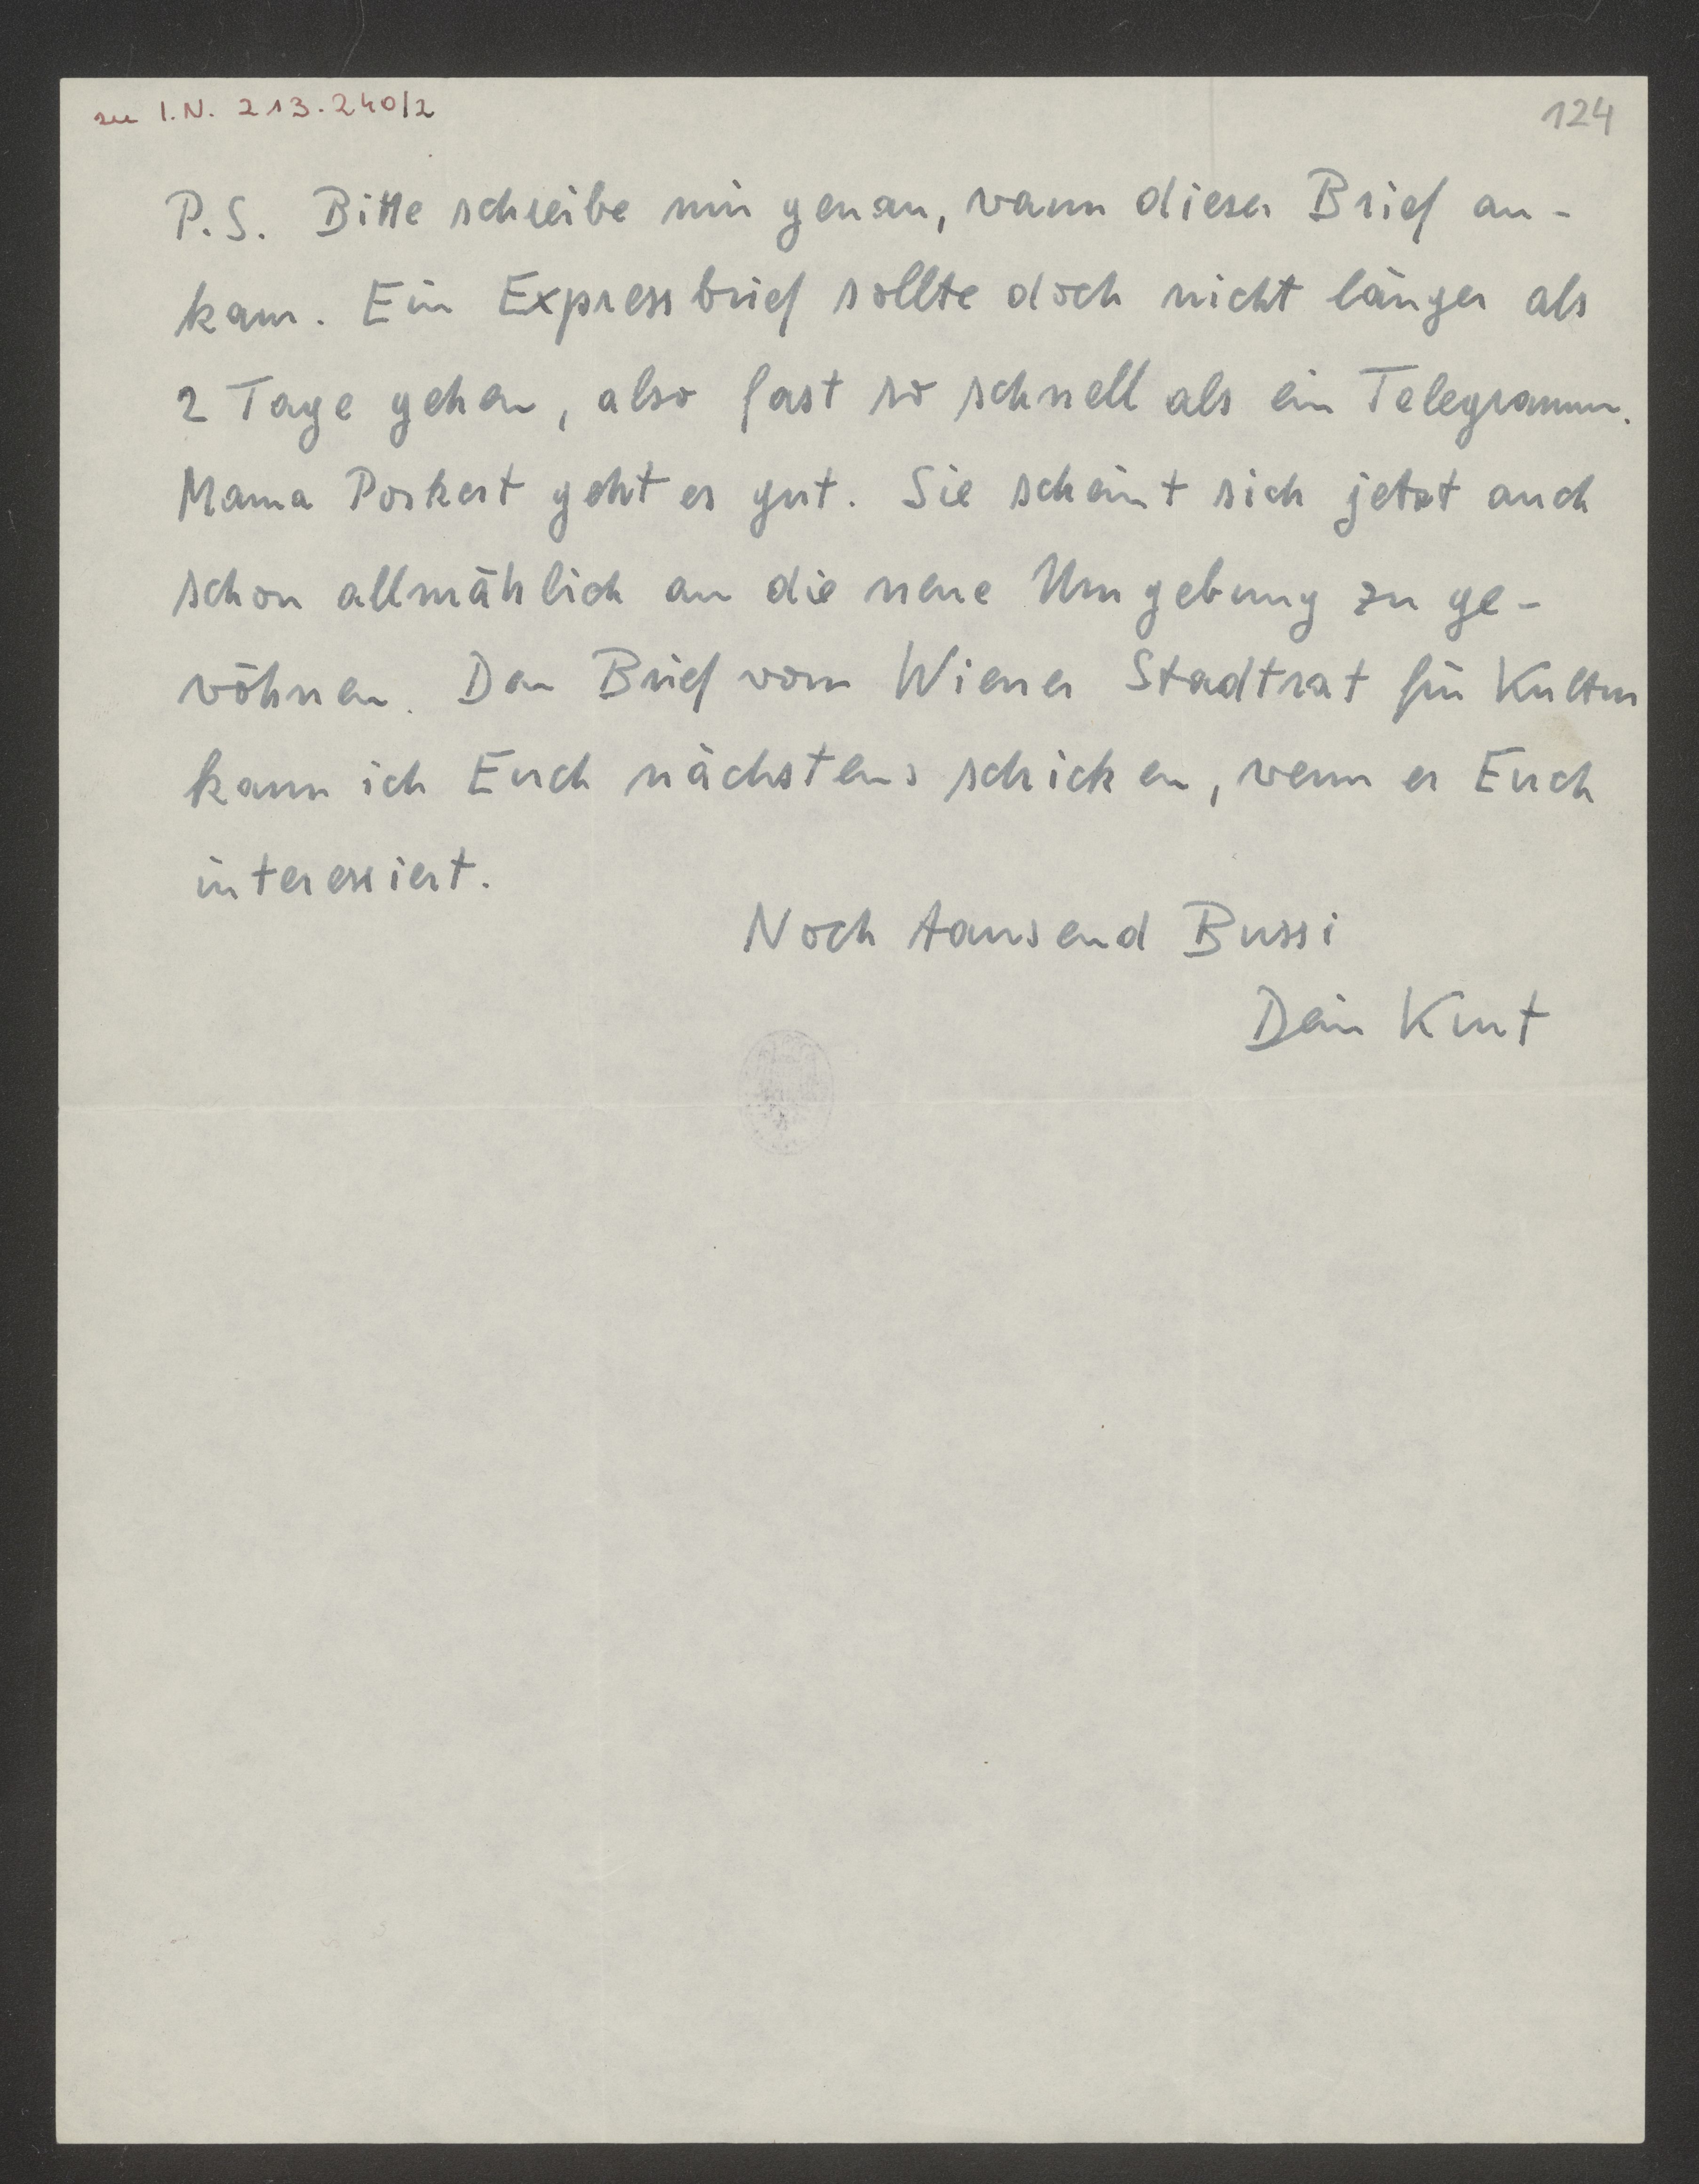 zu I.N. 213.240/2
124
P.S. Bitte schreibe mir genau, wann dieser Brief an-
kam. Ein Expressbrief sollte doch nicht länger als
2 Tage gehen, also fast so schnell als ein Telegramm.
Mama Porkert geht es gut. Sie scheint sich jetzt auch
schon allmählich an die neue Umgebung zu ge-
wöhnen. Den Brief vom Wiener Stadtrat für Kultur
kann ich Euch nächstens schicken, wenn er Euch
interessiert.
Noch tausend Bussi
Dein Kurt